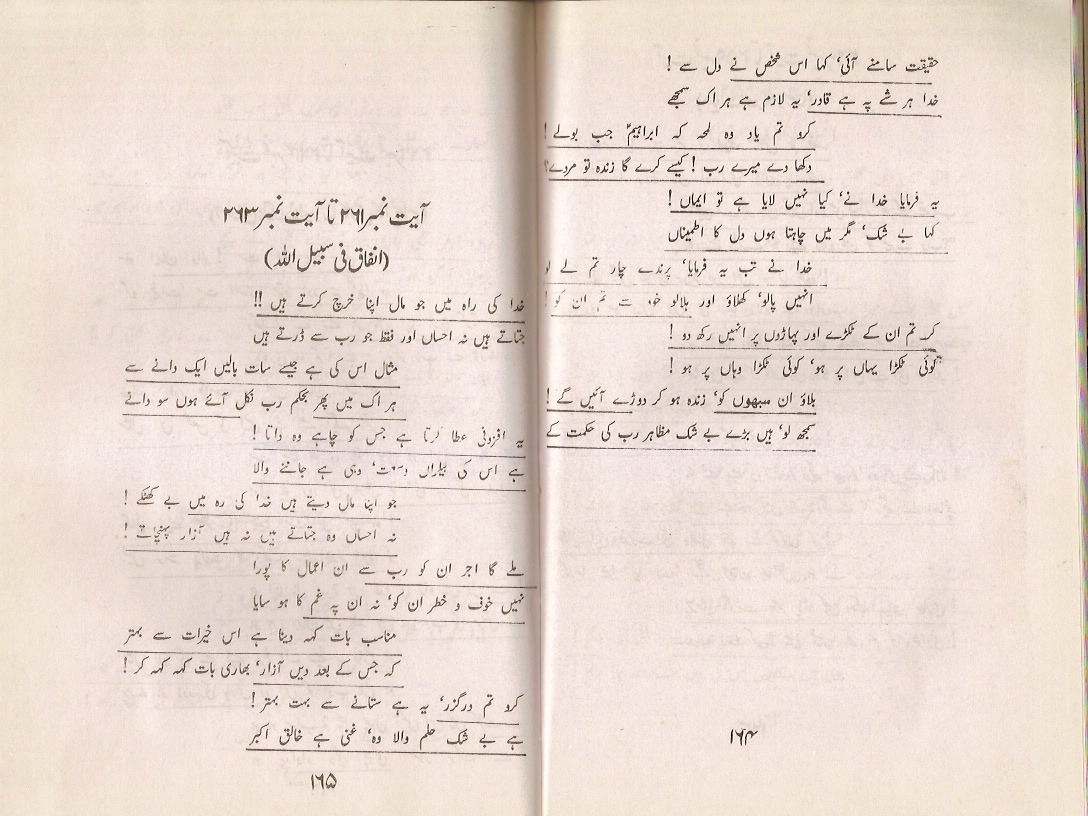 حقیقت سامنے آئی، کہا اس شخص نے دل سے !
خدا ہر شے پہ ہے قادر، یہ لازم ہے ہر اک سمجھے
کرو تم یاد وہ لمحہ کہ ابراہیمؑ جب بولے !
دکھا دے میرے رب ! کیسے کرے گا زندہ تو مردے؟
یہ فرمایا خدا نے، کیا نہیں لایا ہے تو ایماں !
کہا بے شک، مگر میں چاہتا ہوں دل کا اطمیناں
خدا نے تب یہ فرمایا، پرندے چار تم لے لو
انہیں پالو، کھلاؤ اور ہلالو خود سے تم ان کو !
کر تم ان کے ٹکڑے اور پہاڑوں پر انہیں رکھ دو !
کوئی ٹکڑا یہاں پر ہو، کوئی ٹکڑا وہاں پر ہو !
بلاؤ ان سبھوں کو، زندہ ہو کر دوڑے آئیں گے !
سمجھ لو، ہیں بڑے بے شک مظاہر رب کی حکمت کے
۱۶۴
آیت نمبر ۲۶۱ تا آیت نمبر ۲۶۳
(انفاق فی سبیل اللہ)
خدا کی راہ میں جو مال اپنا خرچ کرتے ہیں !!
جتاتے ہیں نہ احساں اور فقط جو رب سے ڈرتے ہیں
مثال اس کی ہے جیسے سات بالیں ایک دانے سے
ہر اک میں پھر بحکم رب نکل آئے ہوں سو دانے
یہ افزونی عطا کرتا ہے جس کو چاہے وہ داتا !
ہے اس کی بیکراں وسعت، وہی ہے جاننے والا
جو اپنا مال دیتے ہیں خدا کی رہ میں بے کھٹکے !
نہ احساں وہ جتاتے ہیں نہ ہیں آزار پہنچاتے !
ملے گا اجر ان کو رب سے ان اعمال کا پورا
نہیں خوف و خطر ان کو، نہ ان پہ غم کا ہو سایا
مناسب بات کہہ دینا ہے اس خیرات سے بہتر
کہ جس کے بعد دیں آزار، بھاری بات کہہ کہہ کر !
کرو تم درگزر، یہ ہے ستانے سے بہت بہتر !
ہے بے شک حلم والا وہ، غنی ہے خالق اکبر
۱۶۵